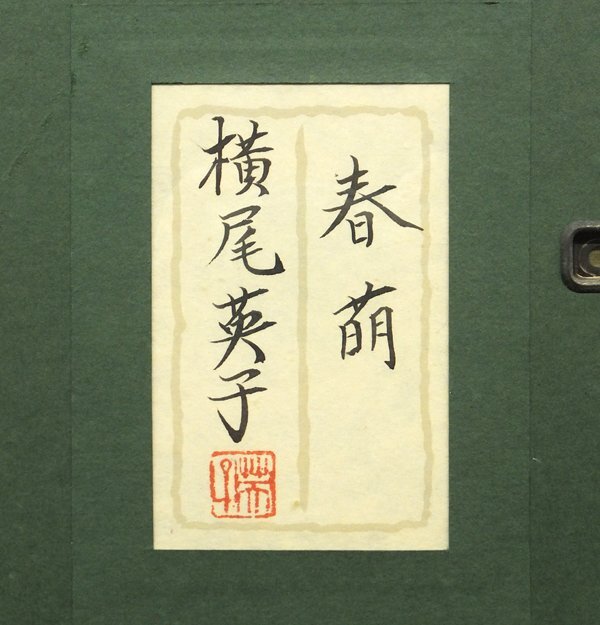 春萌
横尾英子